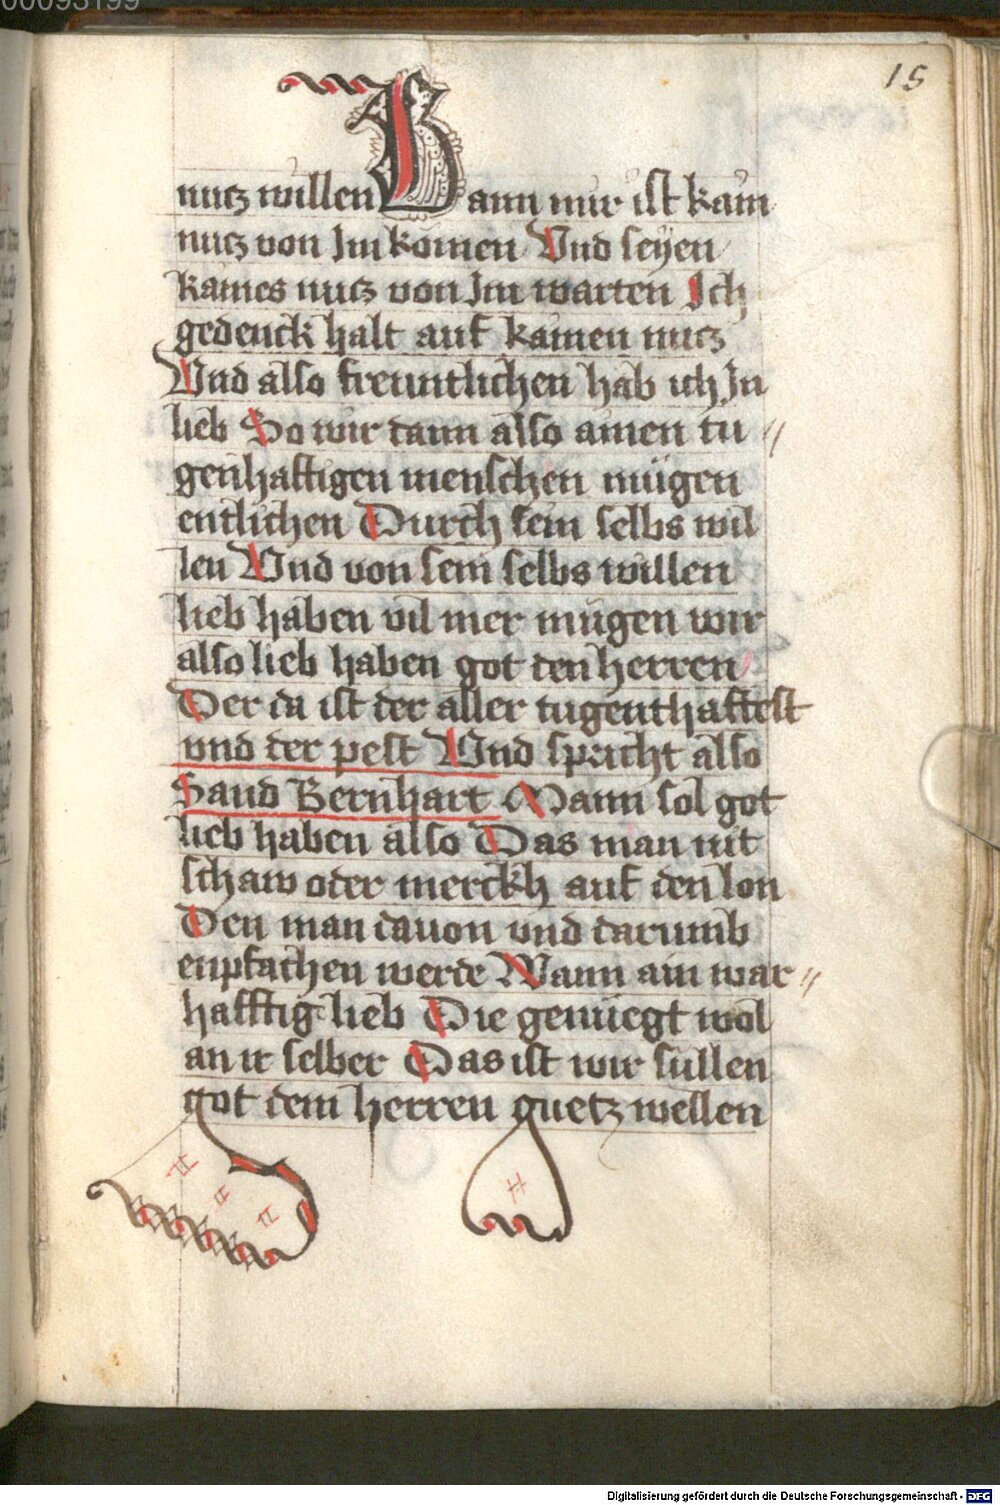 00093199
15
nutz willen Wann mir ist kain
nutz von Im komen Vnd seyen
kaines nutz von Im warten Ich
gedenck halt auf kainen nutz
Vnd also freuntlichen hab ich In
lieb So wir dann also ainen tu //
genhaftigen menschen mügen
entlichen Durch sein selbs wil
len Vnd von sein selbs willen
lieb haben vil mer mügen wir
also lieb haben got den herren
Der da ist der aller tugenthaftest
vnd der pest Vnd spricht also
Sand Bernhart Mann sol got
lieb haben also Das man nit
schaw oder merckh auf den lon
Den man dauon vnd darumb
enpfachen werde Wann ain war //
hafftig lieb Die genuegt wol
an ir selber Das ist wir sullen
got dem herren guetz wellen
Digitalisierung gefördert durch die Deutsche Forschungsgemeinschaft - DFG